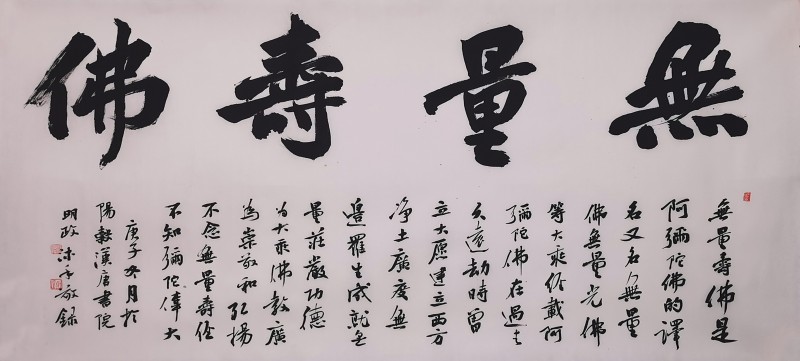 無量壽佛
無量壽佛是
阿彌陀佛的譯
名又名無量
佛無量光佛
等大乘经載阿
彌陀佛在過去
久遠劫時曾
立大愿建立西方
净土廣度無
邊羅生成就無
量莊嚴功德
为大乘佛教廣
為崇敬和弘揚
不念無量壽佛
不知彌陀偉大
庚子冬月於
陽穀漢唐書院
明政
敬錄